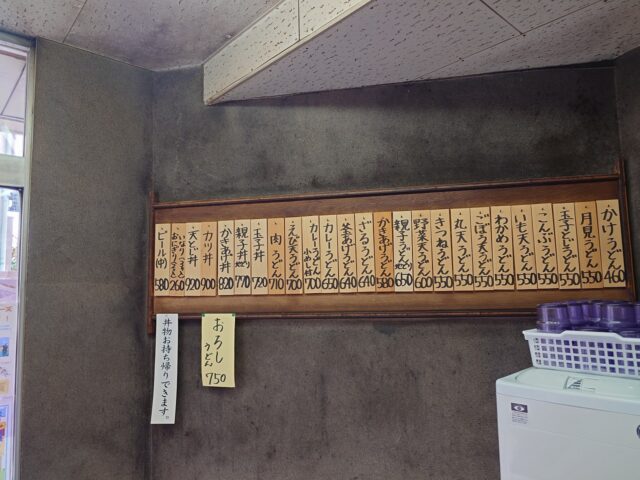 かけうどん 460
月見うどん 550
玉子とじうどん 550
こんぶうどん 550
いも天うどん 550
わかめうどん 550
ごぼう天うどん 550
丸天うどん 550
きつねうどん 550
野菜天うどん 600
親子うどん 650
かきあげうどん 580
ざるうどん 640
釜あげうどん 640
カレーうどん 650
カレーうどん 700
えび天うどん 700
肉うどん 710
玉子丼 720
親子丼 770
かきあげ丼 820
カツ丼 900
天とじ丼 920
いなり
おにぎり 260
ビール(中) 580
おろし
うどん 750
丼物お持ち帰りできます。